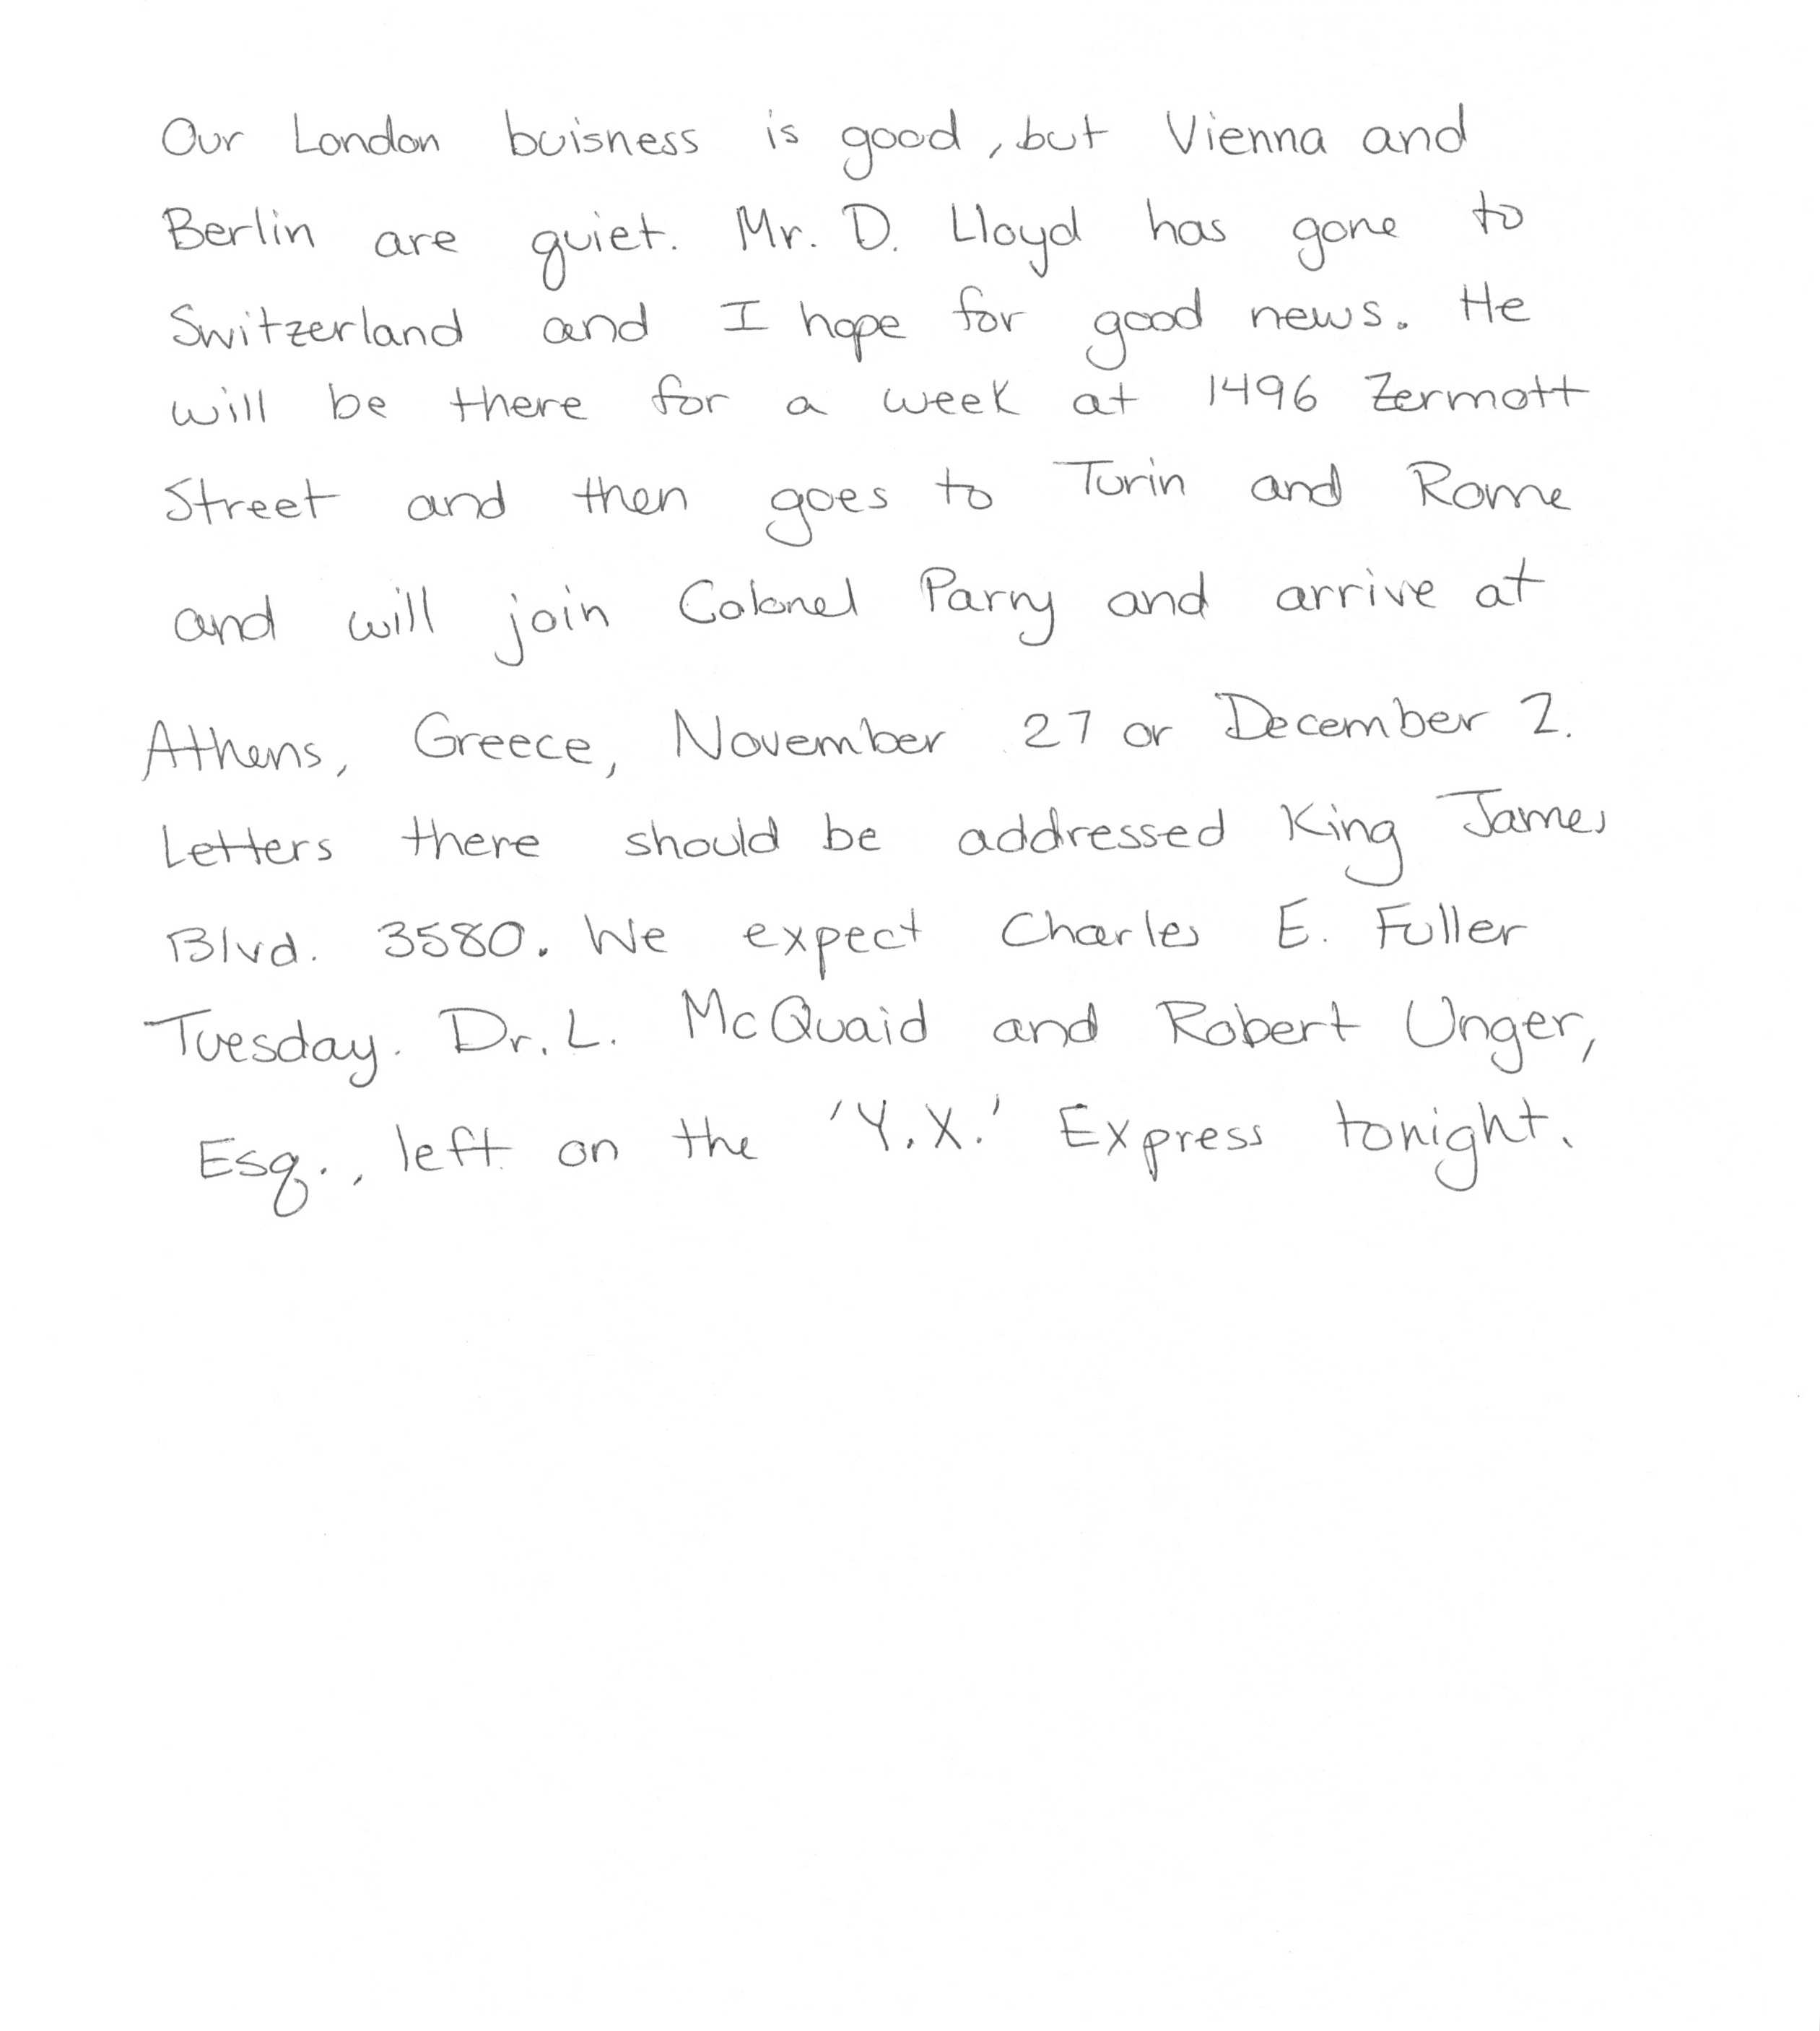 Our London buisness is good, but Vienna and
Berlin are quiet. Mr. D. Lloyd has gone to
Switzerland and I hope for good news. He
will be there for a week at 1496 Zermott
Street and then goes to Turin and Rome
and will join Colonel Parry and arrive at
Athens, Greece, November 27 or December 2.
Letters there should be addressed King James
Blvd. 3580. We expect Charles E. Fuller
Tuesday. Dr. L. McQuaid and Robert Unger,
Esq., left on the 'Y.X.' Express tonight.